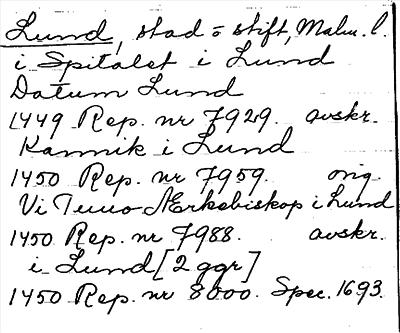 Lund, stad o stift, Malm. l.
i Spitalet i Lund
Datum Lund
1449 Rep. nr 7929. avskr.
Kannik i Lund
1450 Rep. nr 7959. orig.
Vi Tuuo Ærkebiskop i Lund
1450 Rep. nr 7988. avskr.
i Lund [2 ggr]
1450 Rep. nr 8000. Spec. 1693.